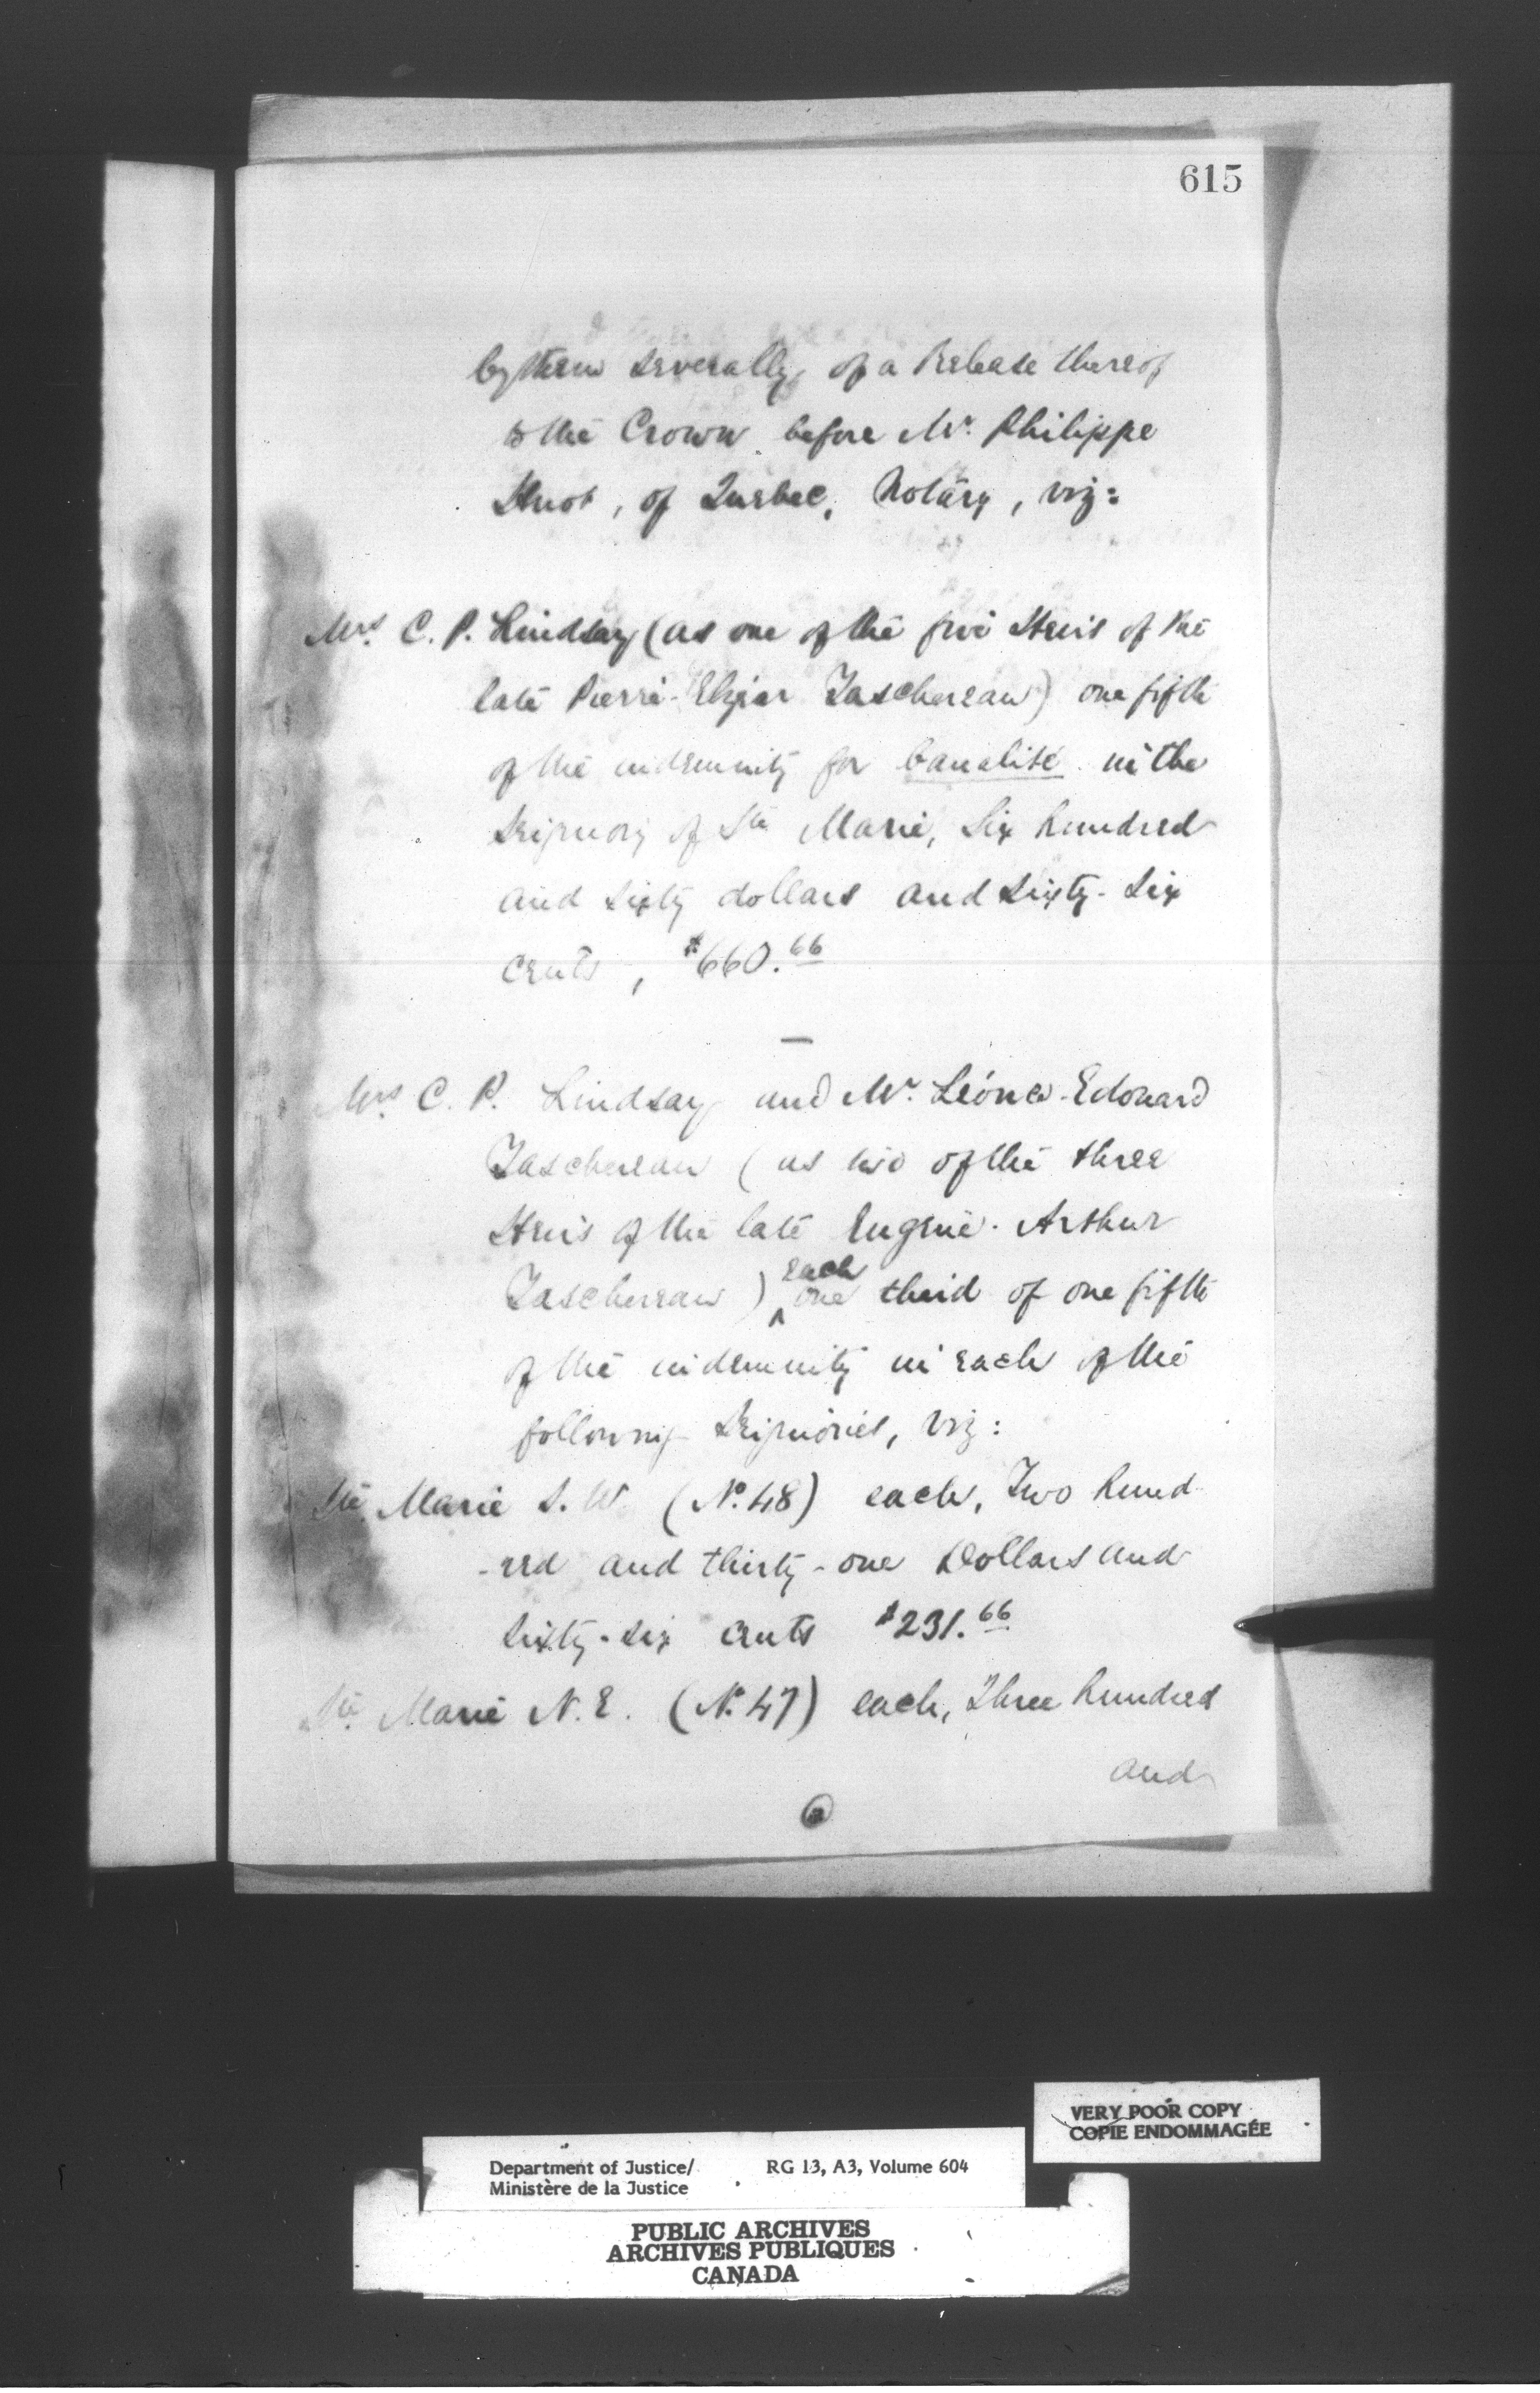 615
by them severally, of a Release thereof
to the Crown before Mr. Philippe
Huot, of Quebec, Notary, viz:
Mrs. C. P. Lindsay (as one of the five Heirs of the
late Pierre-Elzéar Taschereau) one fifth
of the indemnity for banalité in the
Seigniory of Ste Marie, Six hundred
and sixty dollars and sixty-six
cents, $660.66
Mrs C. P. Lindsay and Mr. Léonce-Edouard
Taschereau (as two of the three
Heirs of the late Eugène-Arthur
Taschereau) each one third of one fifth
of the indemnity in each of the
following Seigniories, viz:
Ste. Marie S.W. (No. 48) each, Two hund-
-red and thirty-one Dollars and
sixty-six cents $231.66
Ste. Marie N.E. (No. 47) each, Three hundred
and
VERY POOR COPY
COPIE ENDOMMAGÉE
Department of Justice/ RG 13, A3, Volume 604
Ministère de la Justice
PUBLIC ARCHIVES
ARCHIVES PUBLIQUES
CANADA